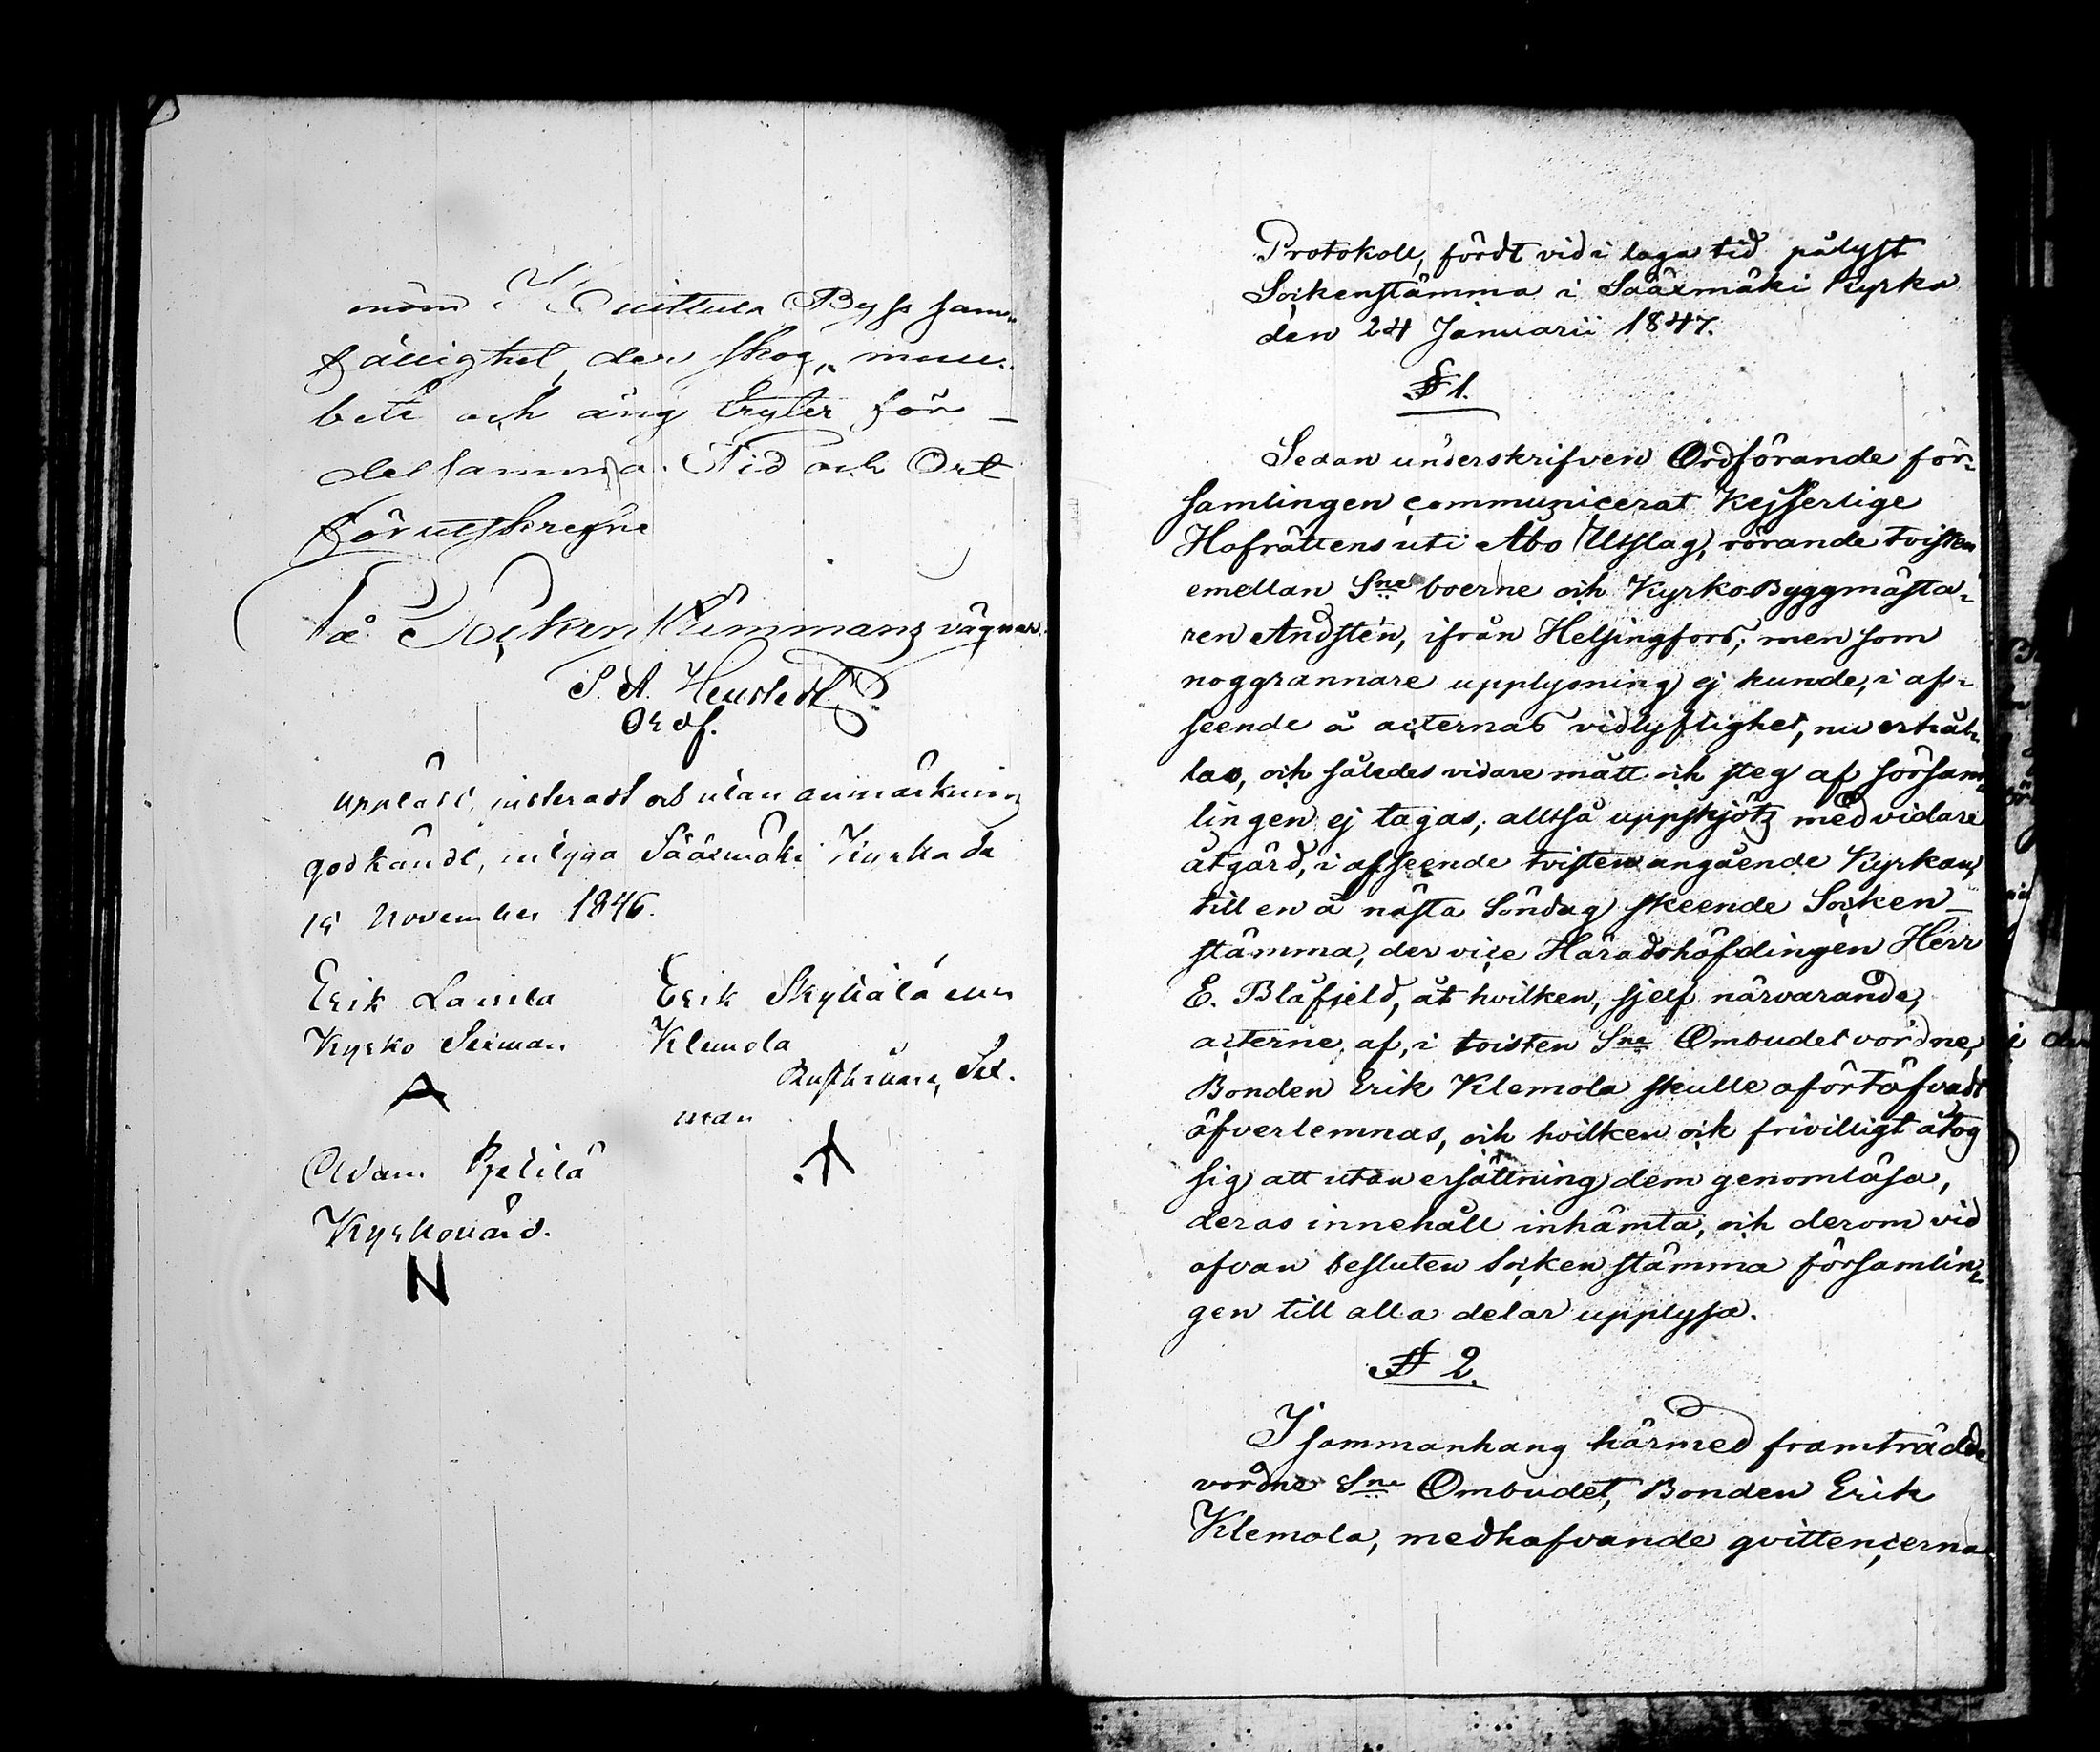 inom Huittula Bys sam-
fällighet, der skog, mul-
bete och äng tryter för
detsamma. Tid och Ort
förutskrefne
På Sockenstämmans vägnar
S. A. Heurstedt
Ordf.
Uppläst, justeradt och utan anmärkning
godkändt, intyga Sääxmäki Kyrka de
15 November 1846.
Erik Laurila
Kyrko Sexman
A
Erik Skyttälä eller
Klemola
Rusthållare, Sex-
man
Adam Pjetilä
Kyrkovärd.
N
Protokoll, fördt vid i laga tid pålyst
Sockenstämma i Sääxmäki Kyrka
den 24 Januarii 1847.
§ 1.
Sedan underskrifven Ordförande för-
samlingen communicerat Kejserlige
Hofrättens uti Åbo Utslag, rörande tvisten
emellan Sne boerne och Kyrko Byggmästa-
ren Andstén, ifrån Helsingfors; men som
noggrannare upplysning ej kunde, i af-
seende å acternas vidlyftighet, nu erhål-
las, och således vidare mått och steg af försam-
lingen ej tagas; alltså uppskjöts med vidare
åtgärd, i afseende tvisten angående Kyrkan,
till en å nästa Söndag skeende Socken-
stämma, der vice Häradshöfdingen Herr
E. Blåfjeld, åt hvilken, sjelf närvarande,
acterne af, i tvisten Sne Ombudet vordne,
Bonden Erik Klemola skulle oförtöfvadt
öfverlemnas, och hvilken ock frivilligt åtog
sig att utan ersättning dem genomläsa,
deras innehåll inhämta, och derom vid
ofvan besluten Sockenstämma församlin-
gen till alla delar upplysa.
§ 2.
I sammanhang härmed framträdde
vordne Sne Ombudet, Bonden Erik
Klemola, medhafvande qvittencerna